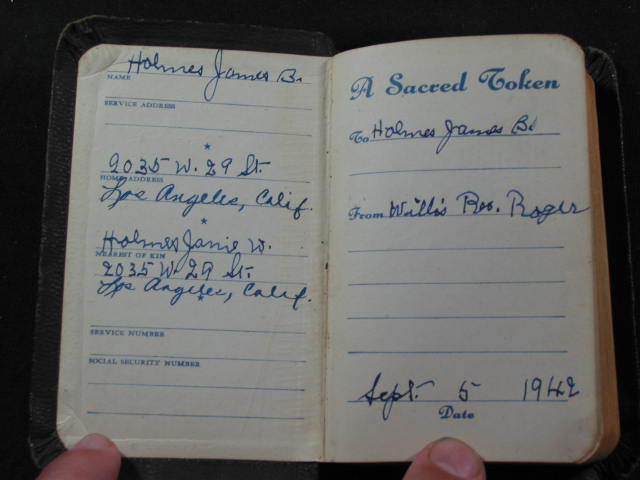 Holmes James B.
NAME
SERVICE ADDRESS
*
2035 W. 29 St.
HOME ADDRESS
Los Angeles, Calif.
*
Holmes Janie W.
NEAREST OF KIN
2035 W. 29 St.
Los Angeles, Calif.
*
SERVICE NUMBER
SOCIAL SECURITY NUMBER
A Sacred Token
To Holmes James B.
From Willis Rev. Roger
Sept. 5 1942
Date